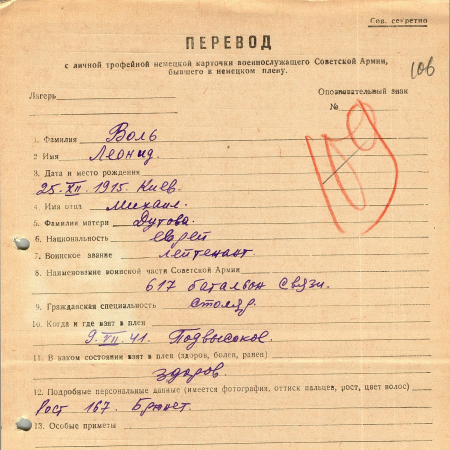 Сов. секретно
ПЕРЕВОД
с личной трофейной немецкой карточки военнослужащего Советской Армии,
бывшего в немецком плену.
106
Лагерь
Опознавательный знак
№
1. Фамилия Воль
2 Имя Леонид.
3. Дата и место рождения
25. XII. 1915. Киев.
4. Имя отца Михаил.
5. Фамилия матери Дутова.
6. Национальность еврей
7. Воинское звание лейтенант.
8. Наименование воинской части Советской Армии
617 батальон связи.
9. Гражданская специальность столяр.
10. Когда и где взят в плен
9. VII. 41. Подвысокое.
11. В каком состоянии взят в плен (здоров, болен, ранен)
здоров.
12. Подробные персональные данные (имеется фотография, оттиск пальцев, рост, цвет волос)
Рост 167. Брюнет.
13. Особые приметы